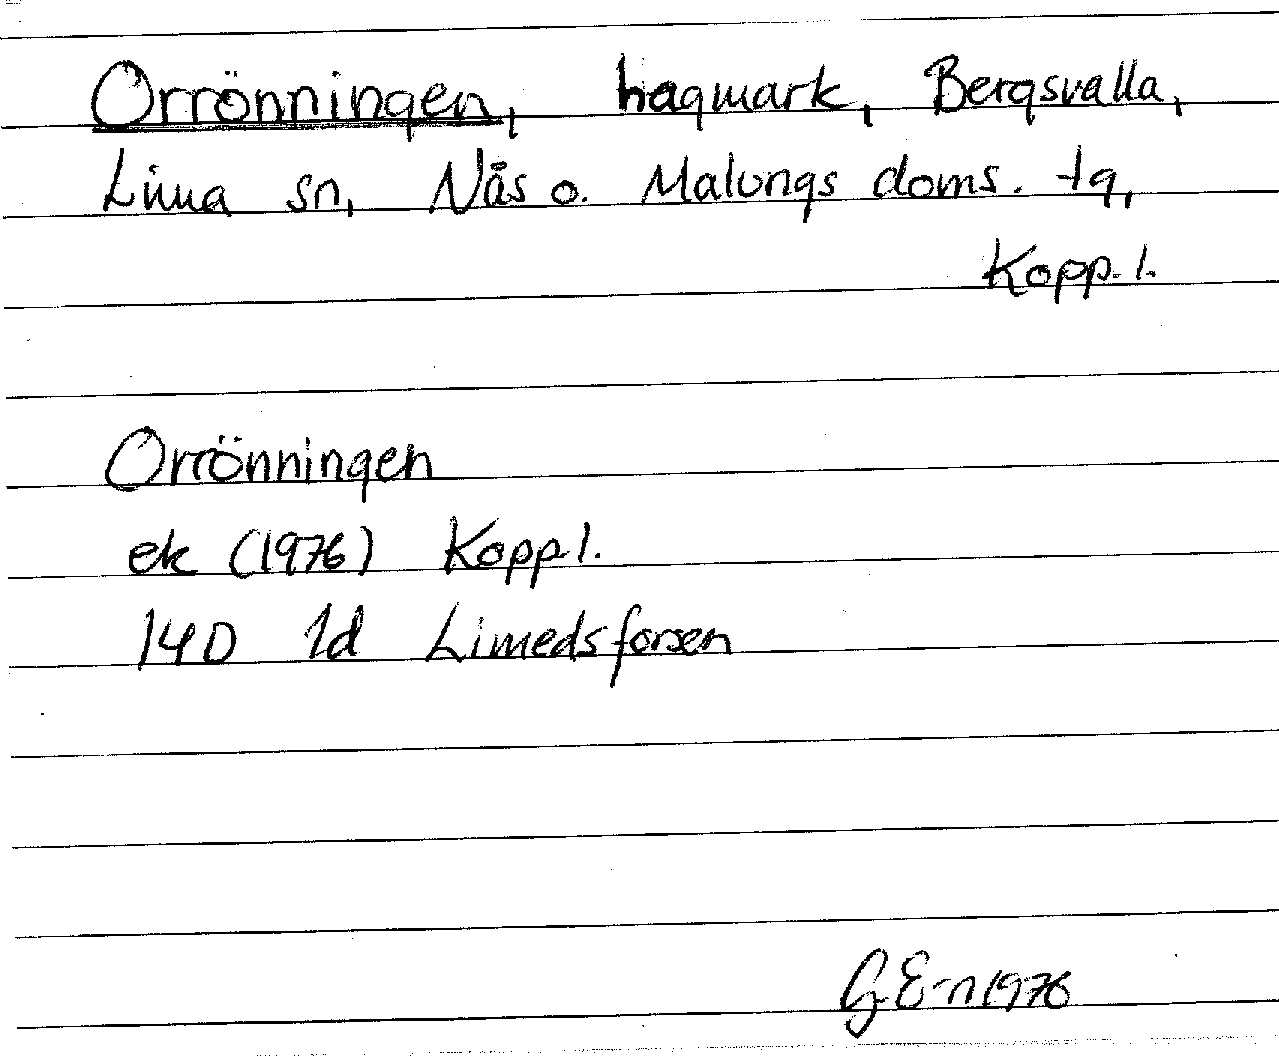 Orrönningen, hagmark, Bergsvalla,
Lima sn, Nås o. Malungs doms. tg,
Kopp. l.
Orrönningen
ek (1976) Kopp l.
14D 1d Limedsforsen
G E-n 1976